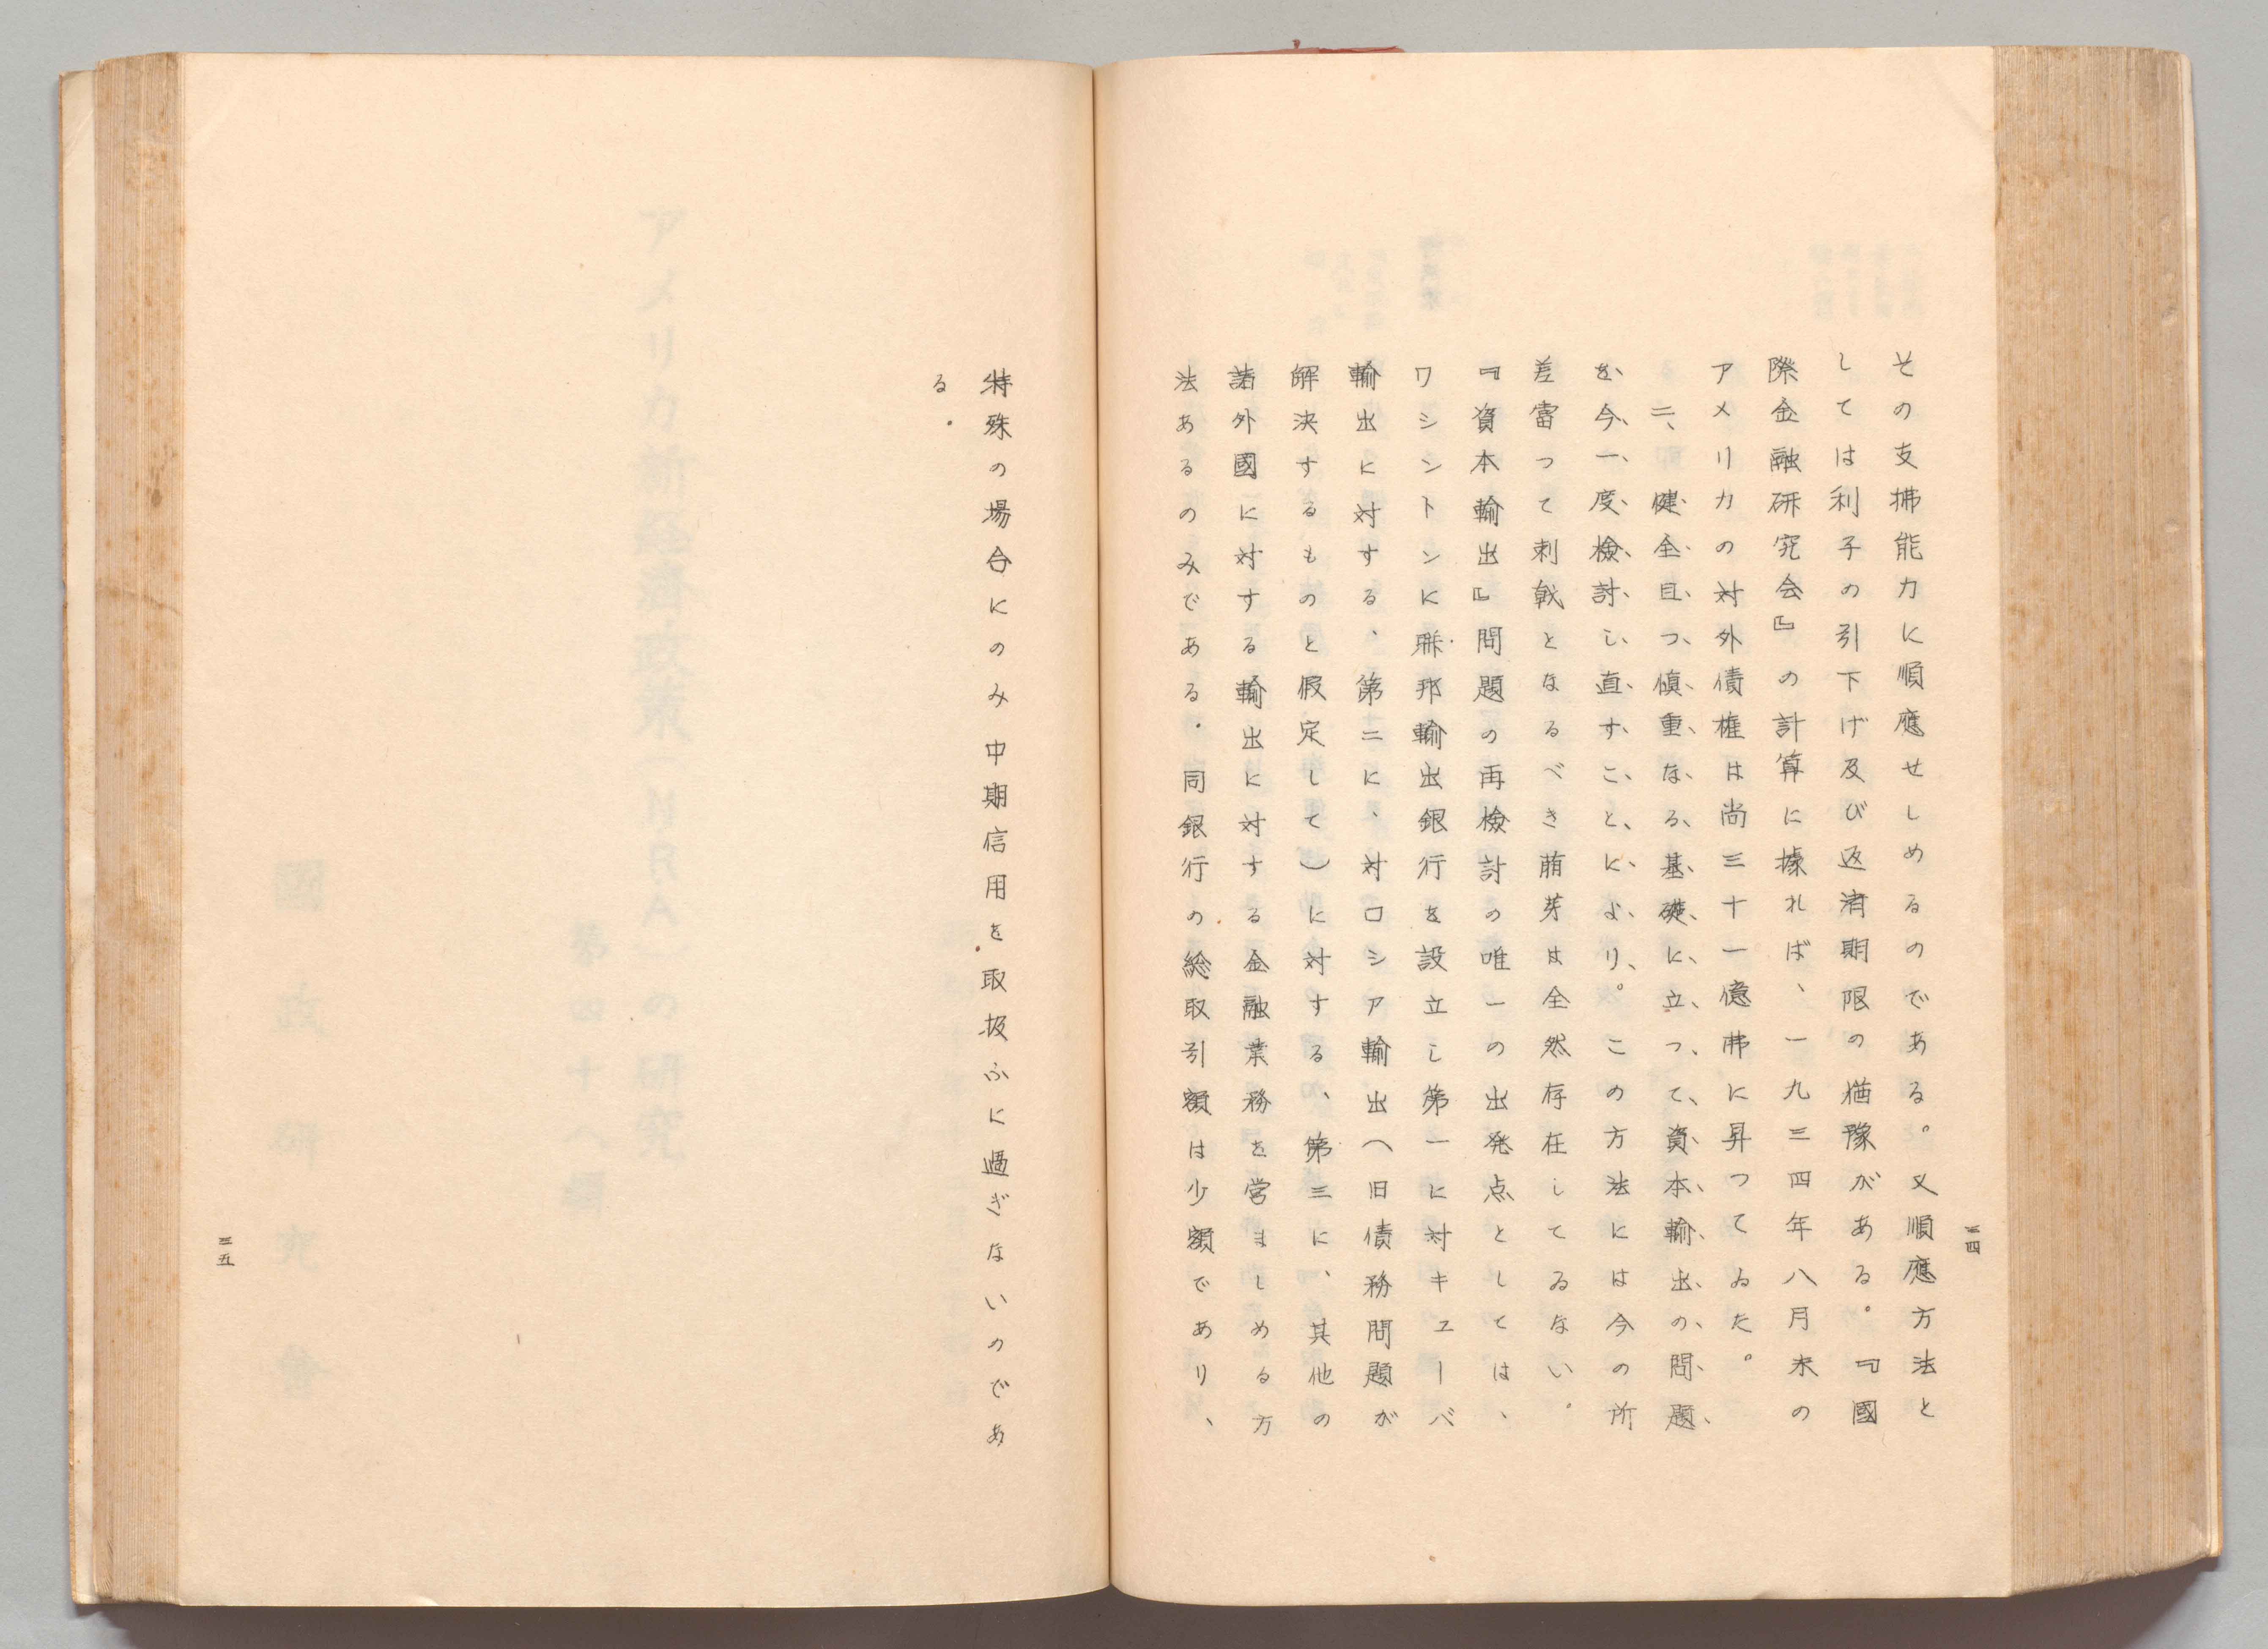 三四
その支拂能力に順應せしめるのである。又順應方法と
しては利子の引下げ及び返済期限の猶豫がある。『國
際金融研究会』の計算に據れば、一九三四年八月末の
アメリカの対外債権は尚三十一億弗に昇つてゐた。
二、健全且つ慎重なる基礎に立つて資本輸出の問題
を今一度検討し直すことにより。この方法には今の所
差當つて刺戟となるべき萠芽は全然存在してゐない。
『資本輸出』問題の再検討の唯一の出発点としては、
ワシントンに聯邦輸出銀行を設立し第一に対キユーバ
輸出に対する、第二に、対ロシア輸出(旧債務問題が
解決するものと假定して)に対する、第三に、其他の
諸外國に対する輸出に対する金融業務を営ましめる方
法あるのみである。同銀行の総取引額は少額であり、
特殊の場合にのみ中期信用を取扱ふに過ぎないのであ
る。
三五
アメリカ新経済政策(NRA)の研究
第四十八輯
國政研究会